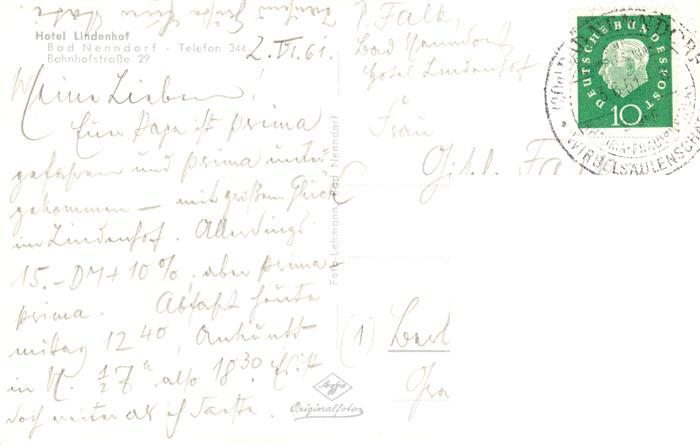 Tausend Grüße Euer Vater
Hotel Lindenhof
Bad Nenndorf - Telefon 344
Bahnhofstraße 29
2.VI.61.
Meine Lieben!
Euer Papa ist prima
gefahren und prima unter
gekommen – mit großem Glück
im Lindenhof. Allerdings
15.- DM + 10%, aber prima
prima. Abfahrt heute
mittag 12 40, Ankunft
in N. 1/2 7 h also 18 30. Es ist
doch weiter als ich dachte.
Foto-Lehmann, Bad Nenndorf
Agfa
Originalfoto
Falk
Bad Nenndorf
Hotel Lindenhof
Frau
Fa
(1)
DEUTSCHE BUNDESPOST
10
WIRBELSÄULENSCH